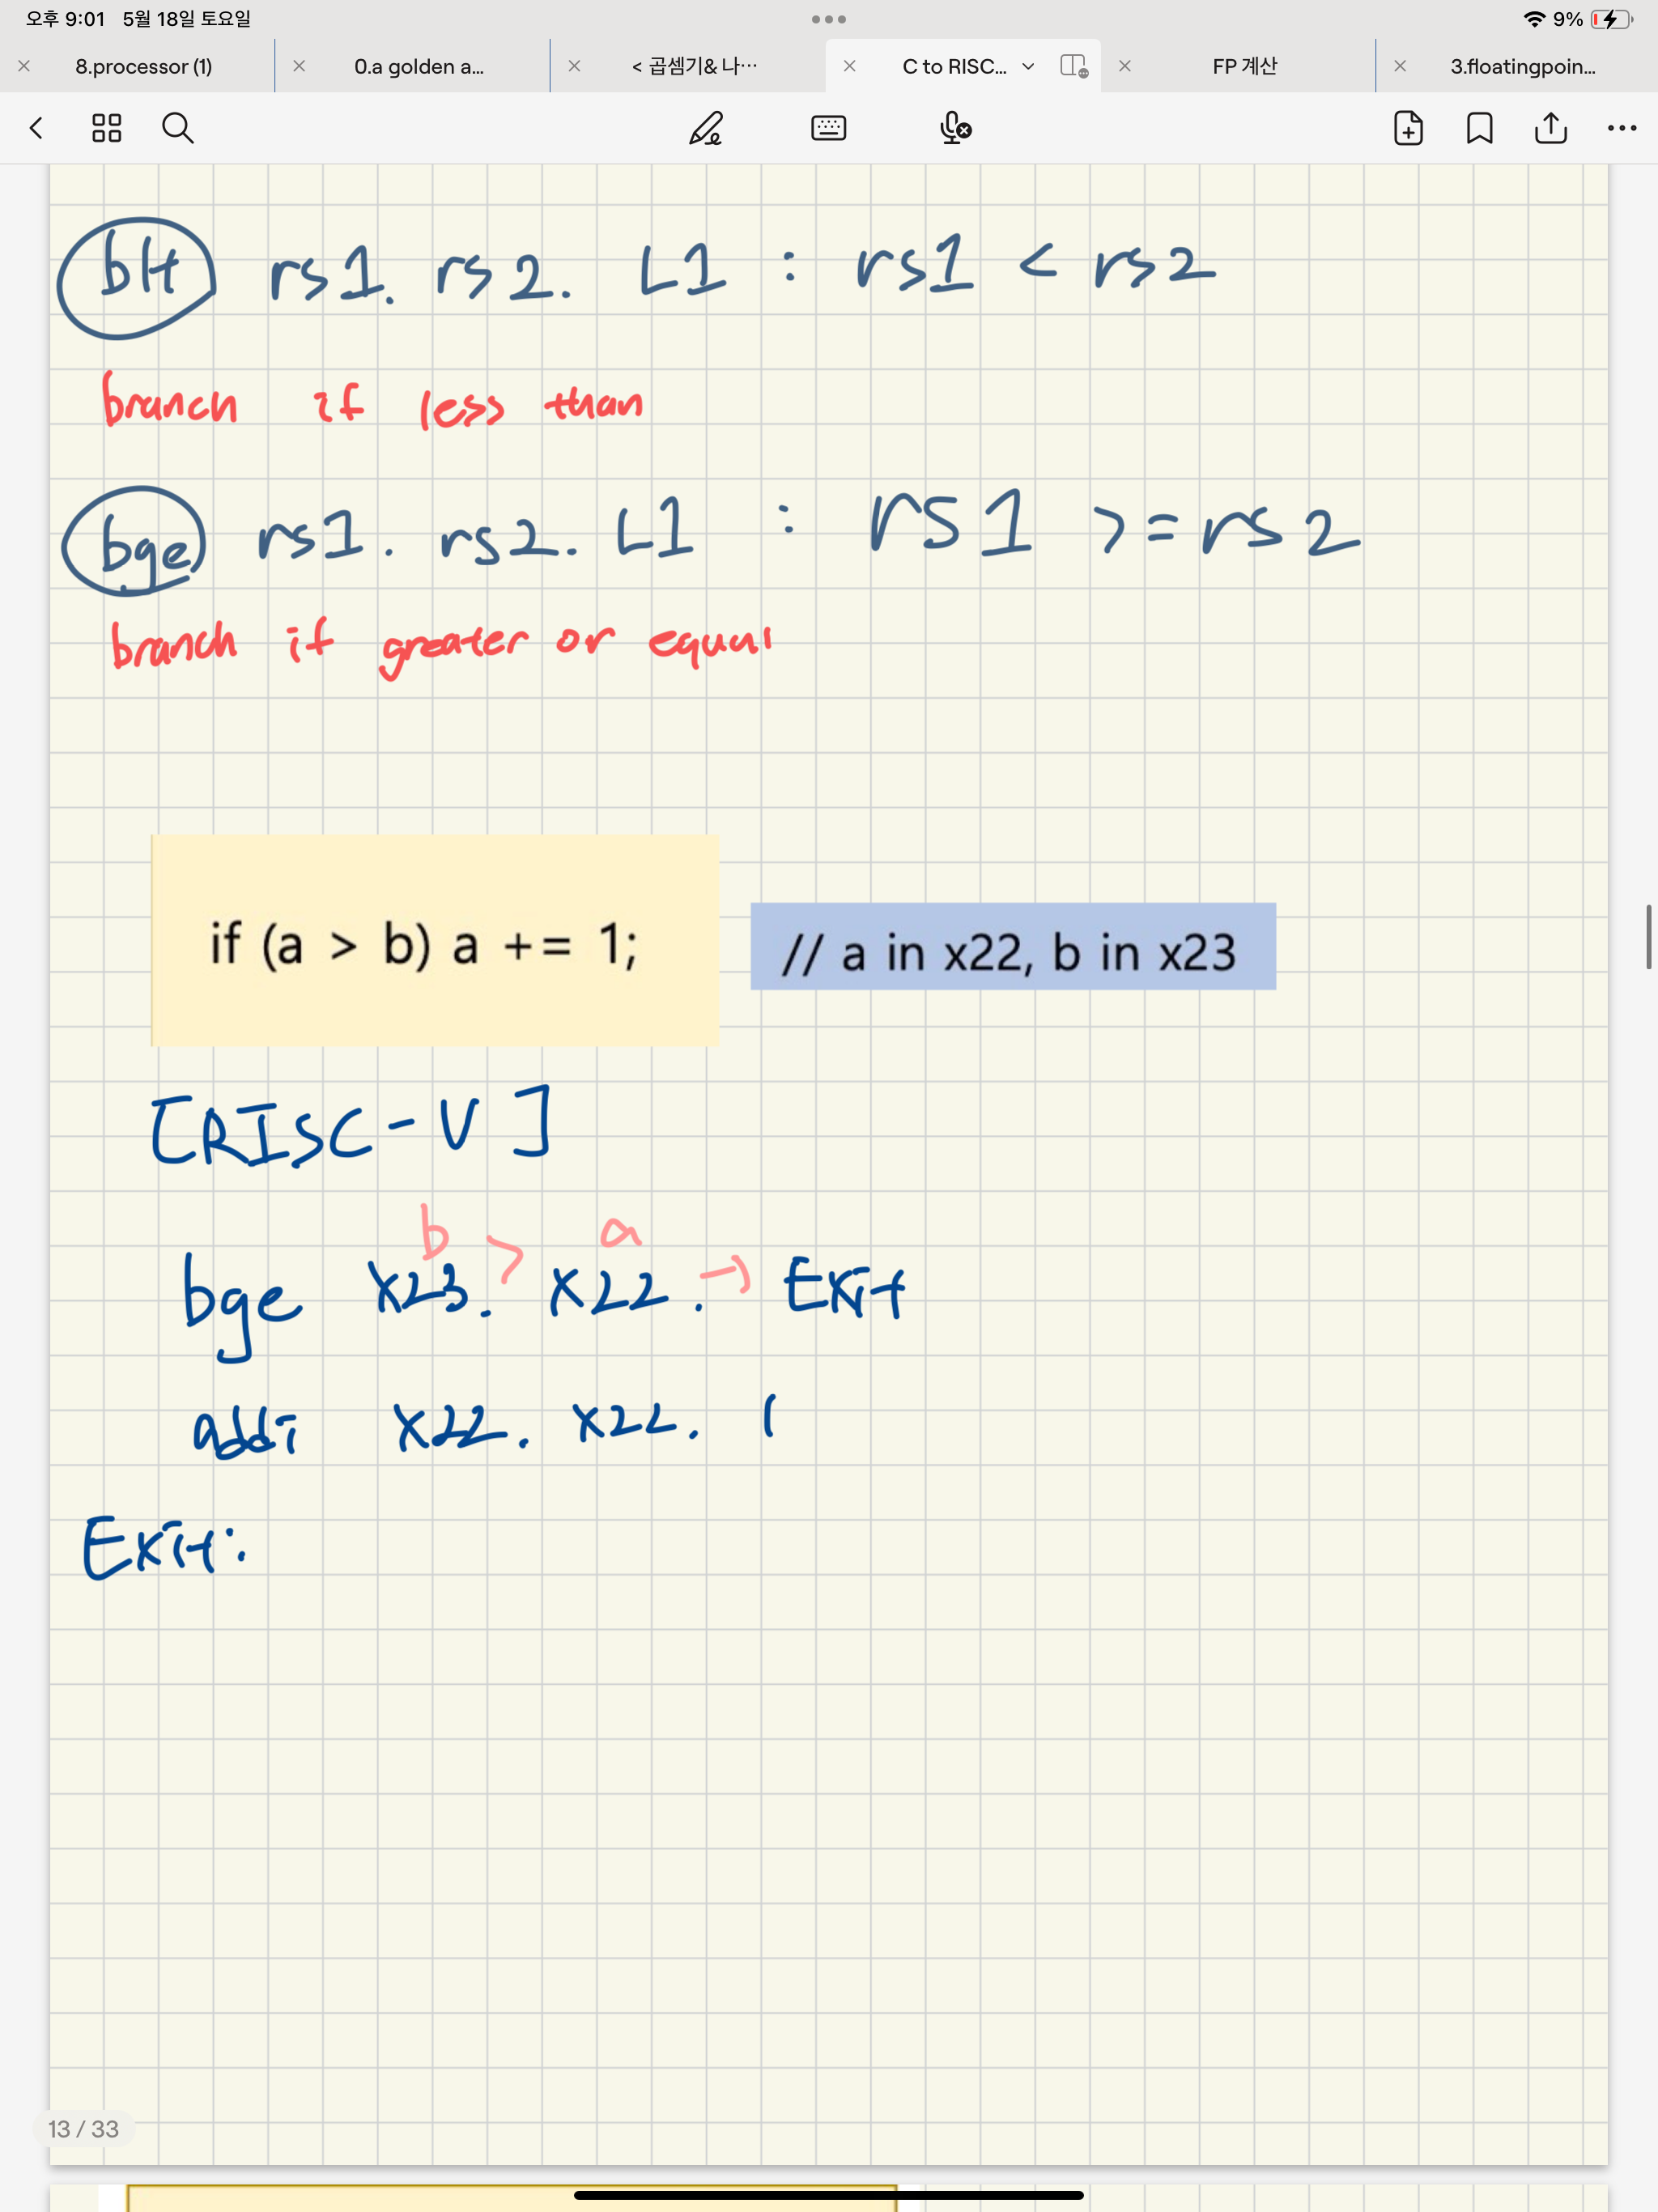 오후 9:01 5월 18일 토요일 9%
8.processor (1) 0.a golden a... < 곱셈기& 나… C to RISC... FP 계산 3.floatingpoin...
blt rs1. rs2. L1 : rs1 < rs2
branch if less than
bge rs1. rs2. L1 : rs1 >= rs2
branch if greater or equal
if (a > b) a += 1;
// a in x22, b in x23
[RISC-V]
b > a
bge x23. x22. → Exit
addi x22. x22. 1
Exit:
13 / 33